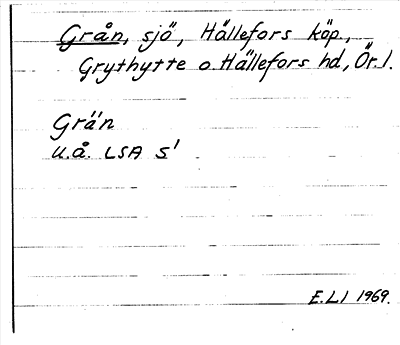 Grån, sjö, Hällefors köp.,
Grythytte o. Hällefors hd, Ör. l.
Grän
U.å. LSA S1
E.LI 1969.